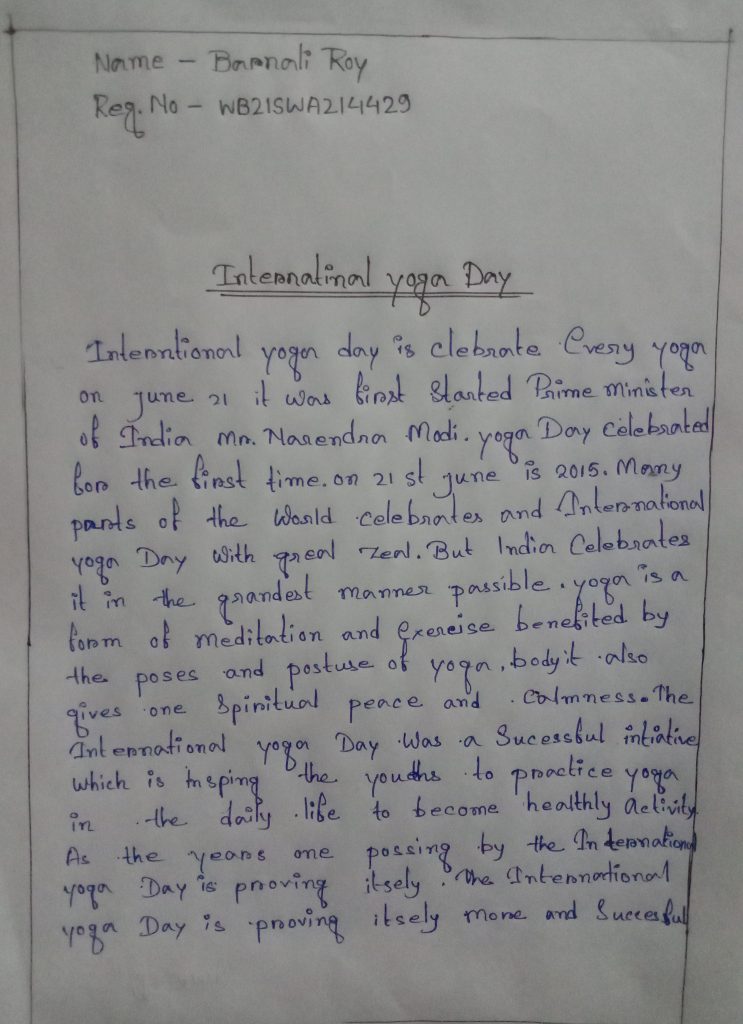 Name - Barnali Roy
Reg. No - WB21SWA214429
Internatinal yoga Day
Interntional yoga day is clebrate Every yoga
on june 21 it was first Started Prime minister
of India Mr. Narendra Modi. yoga Day celebrated
for the first time. on 21 st june is 2015. Many
parts of the World celebrates and International
yoga Day with greal zeal. But India Celebrates
it in the grandest manner passible. yoga is a
form of meditation and exereise benefited by
the poses and postuse of yoga, body it also
gives one Spiritual peace and Calmness. The
International yoga Day Was a Sucessful intiative
which is insping the youths to practice yoga
in the daily life to become healthly activity.
As the years one possing by the International
yoga Day is proving itsely. The International
yoga Day is proving itsely more and Succesful